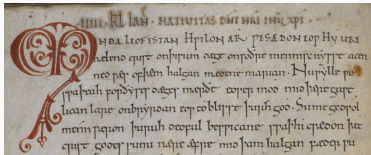 KL IAN. NATIVITAS DNI NRI IHU XPI
MEN ÐA LEOFESTAN HWILON ÆR WE SÆDON EOW HU URE
hælend crist on þisum dæge on soðre mennisnysse acen
ned wæs of þam halgan mædene marian. Nu wylle we
swa þeah for þyses dæges mærðe eower mod mid þære gast
lican lare onbryrdan eow to blisse þurh god. Sume gedwol
men wæron þurh deofol beswicene swa þæt hi cwædon þæt
crist godes sunu nære æfre mid þam halgan fæder wu